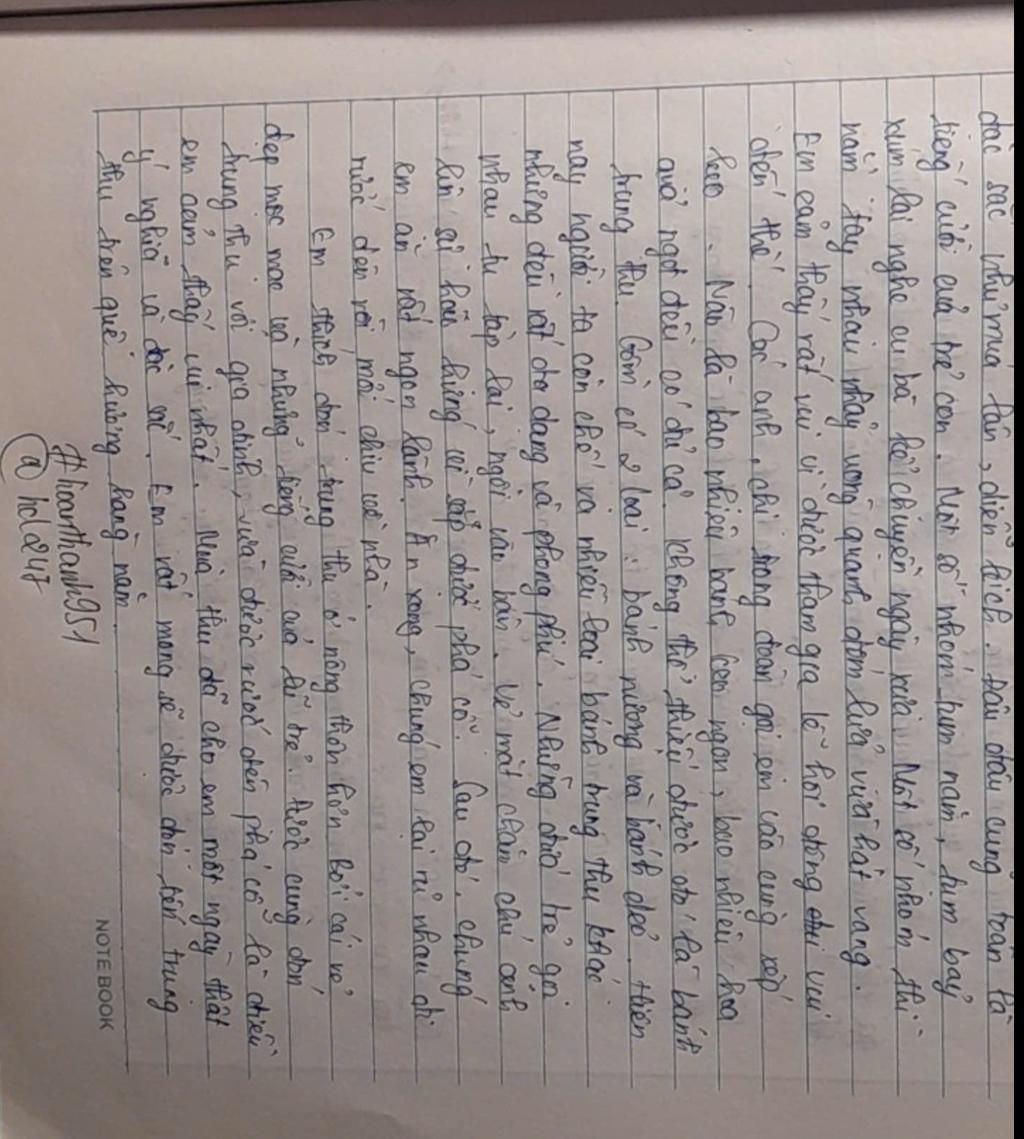 đặc sắc như múa lân, diễn kịch. Đâu đâu cũng toàn là
tiếng cười của trẻ con. Một số nhóm tụm năm, tụm bảy
xúm lại nghe cụ bà kể chuyện ngày xưa. Một số nhóm thì
nắm tay nhau nhảy vòng quanh đóm lửa vừa hát vang.
Em cảm thấy rất vui vì được tham gia lễ hội đông vui
đến thế. Các anh, chị trong đoàn gọi em vào cùng xếp
kẹo. Nào là bao nhiêu bánh kẹo ngon, bao nhiêu hoa
quả ngọt đều có đủ cả. Không thể thiếu được đó là bánh
trung thu. Gồm có 2 loại: bánh nướng và bánh dẻo. Hiện
nay người ta còn chế ra nhiều loại bánh trung thu khác
nhưng đều rất đa dạng và phong phú. Những đứa trẻ gọi
nhau tụ tập lại, ngồi vào bàn. Vẻ mặt chăm chú ánh
lên sự hào hứng vì sắp được phá cỗ. Sau đó, chúng
em ăn rất ngon lành. Ăn xong, chúng em lại rủ nhau đi
rước đèn rồi mới chịu về nhà.
Em thích đón trung thu ở nông thôn hơn bởi cái vẻ
đẹp mộc mạc và những tiếng cười của lũ trẻ. Được cùng đón
trung thu với gia đình, vừa được rước đèn phá cỗ là điều
em cảm thấy vui nhất. Mùa thu đã cho em một ngày thật
ý nghĩa và thú vị. Em rất mong sẽ được đón tết trung
thu trên quê hương hằng năm.
#hoanthanh951
@hold247
NOTEBOOK